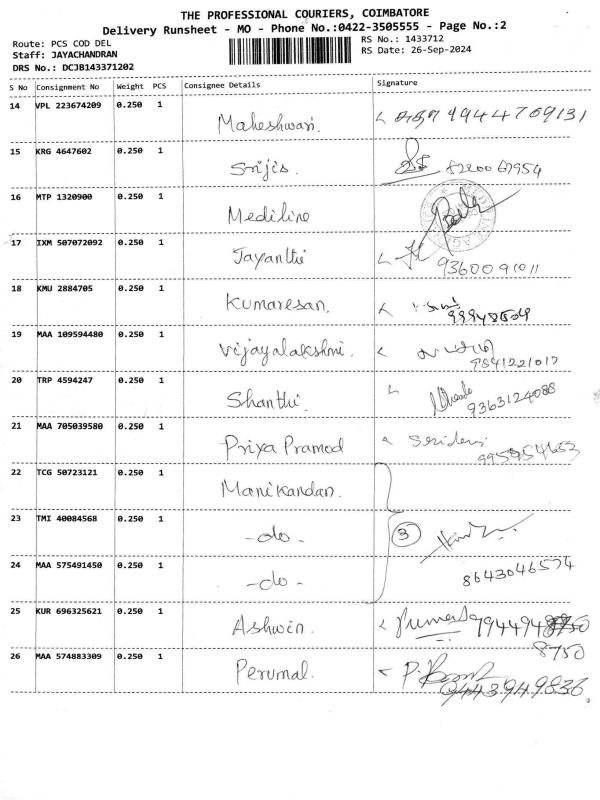 THE PROFESSIONAL COURIERS, COIMBATORE
Delivery Runsheet - MO - Phone No.:0422-3505555 - Page No.:2
Route: PCS COD DEL
Staff: JAYACHANDRAN
DRS No.: DCJB143371202
RS No.: 1433712
RS Date: 26-Sep-2024
S No Consignment No Weight PCS Consignee Details Signature
14 VPL 223674209 0.250 1 Maheshwari. 9944709131
15 KRG 4647602 0.250 1 Srijis.
16 MTP 1320900 0.250 1 Mediline
17 IXM 507072092 0.250 1 Jayanthi 9360091011
18 KMU 2884705 0.250 1 Kumaresan.
19 MAA 109594480 0.250 1 Vijayalakshmi.
20 TRP 4594247 0.250 1 Shanthi. 9363124088
21 MAA 705039580 0.250 1 Priya Pramod
22 TCG 50723121 0.250 1 Manikandan.
23 TMI 40084568 0.250 1 -do- 3
24 MAA 575491450 0.250 1 -do- 8643046574
25 KUR 696325621 0.250 1 Ashwin.
8750
26 MAA 574883309 0.250 1 Perumal.